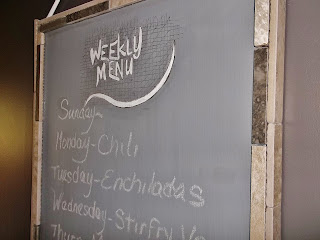 WEEKLY
MENU
Sunday-
Monday-Chili
Tuesday-Enchiladas
Wednesday-Stirfry Ve
Thurs